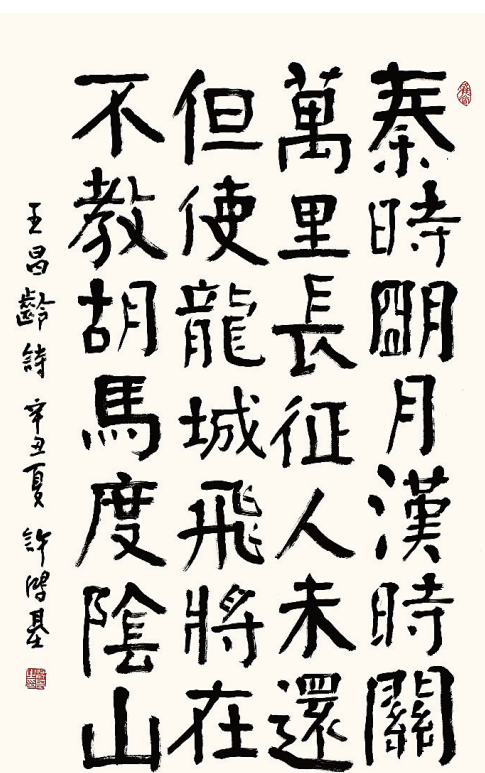 秦時明月漢時關
萬里長征人未還
但使龍城飛將在
不教胡馬度陰山
王昌齡詩 辛丑夏 許鴻基